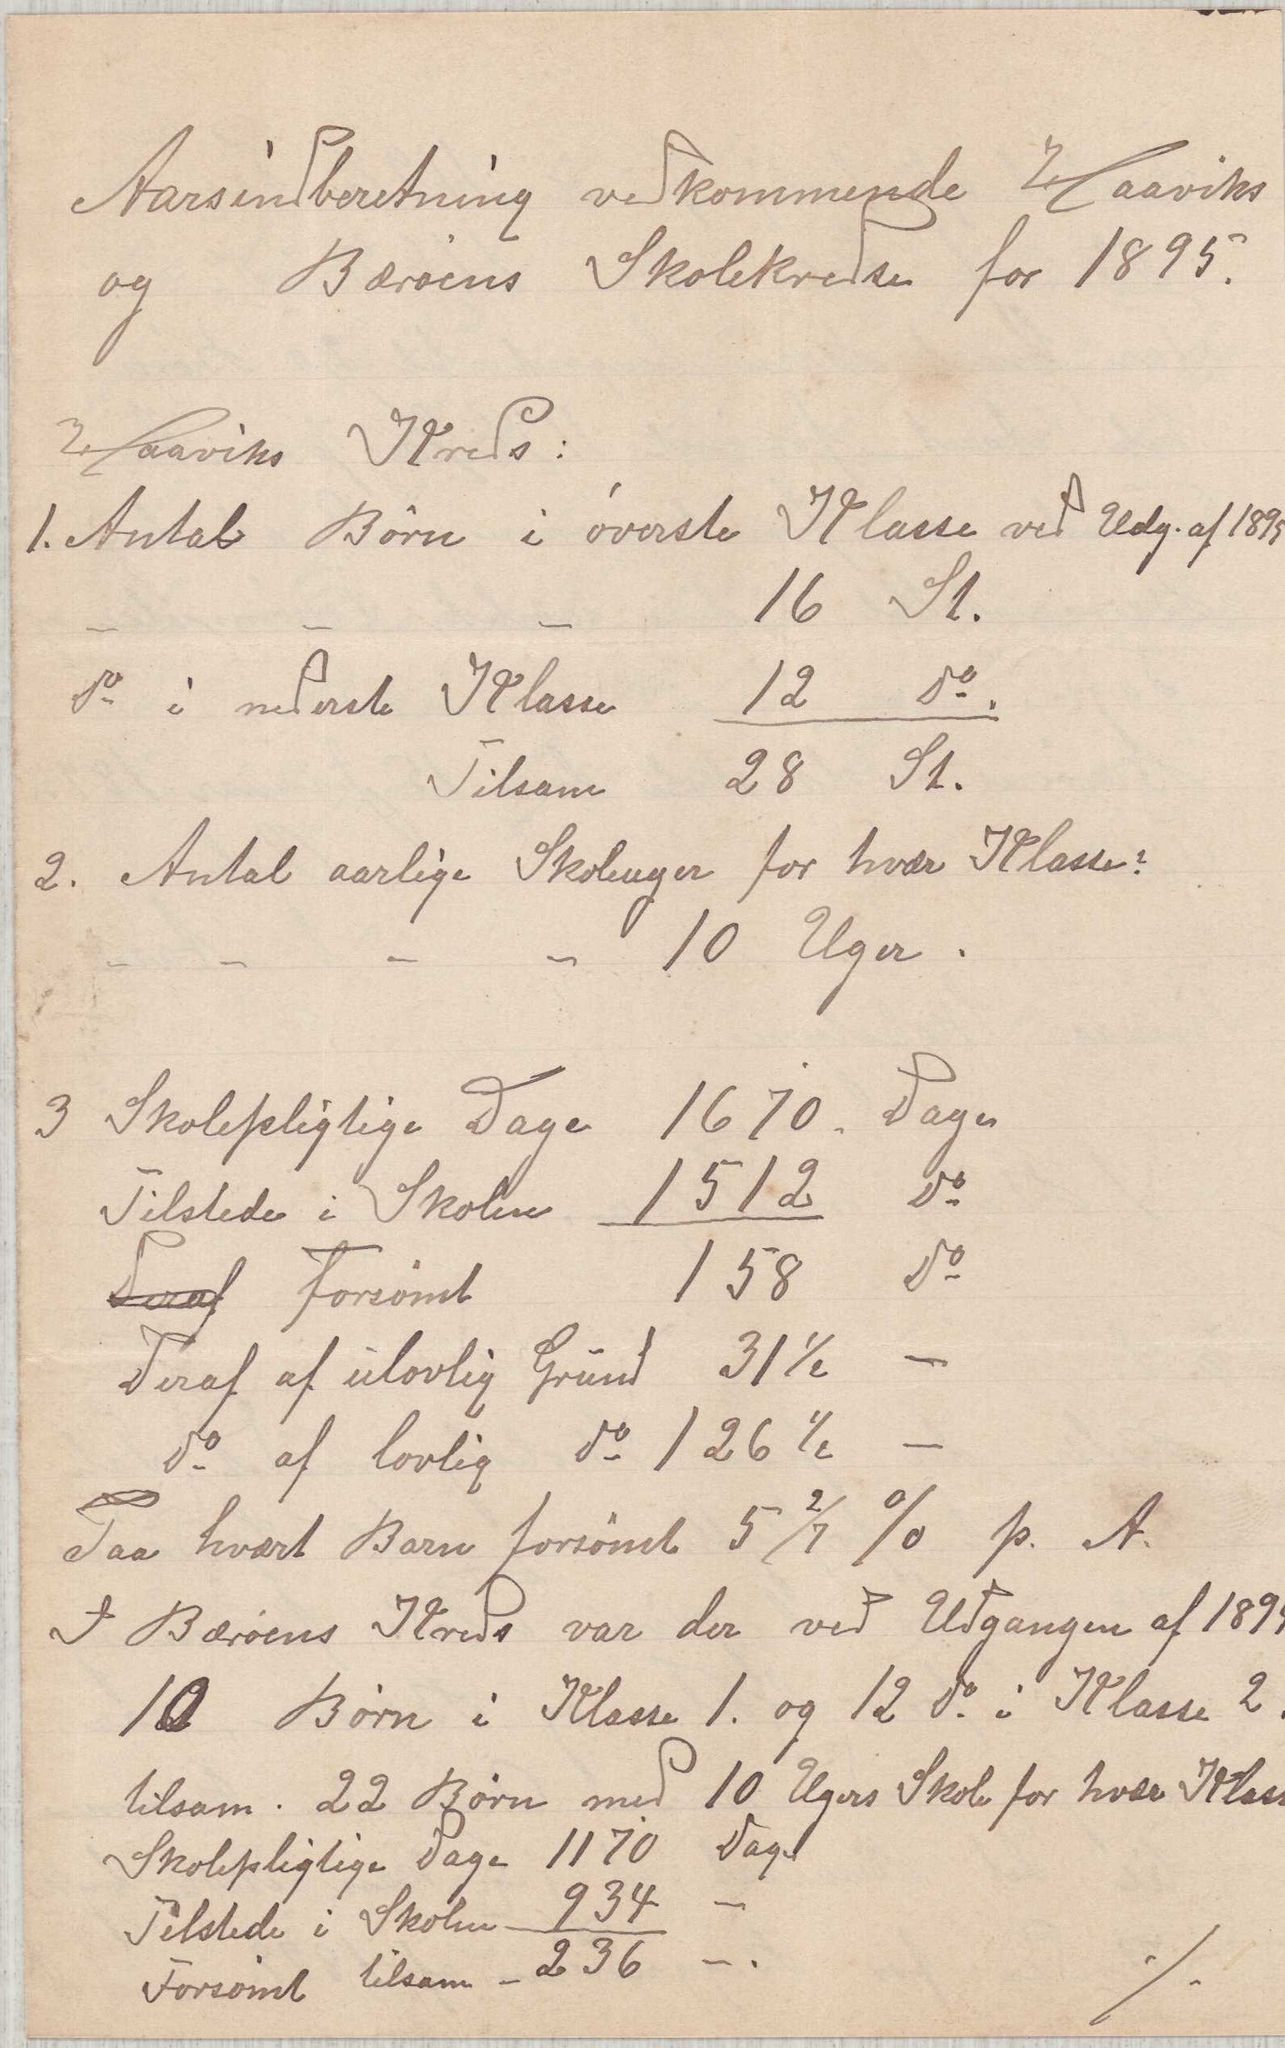 Aarsindberetning vedkommende Haaviks
og Bærøens Skolekredse for 1895.
Haaviks Kreds:
1. Antal Børn i øverste Klasse ved Udg. af 1895
— — — 16 St.
do i nederste Klasse 12 do.
Tilsam 28 St.
2. Antal aarlige Skoleuger for hver Klasse:
— — — — 10 Uger.
3 Skolepligtige Dage 1670. Dage
Tilstede i Skolen 1512 do
Deraf Forsømt 158 do
Deraf af ulovlig Grund 31 1/2 —
do af lovlig do 126 1/2 —
Paa hvert Barn forsømt 5 2/7 % p. A.
I Bærøens Kreds var der ved Udgangen af 189
10 Børn i Klasse 1. og 12 do. i Klasse 2.
tilsam. 22 Børn med 10 Ugers Skole for hver Klass
Skolepligtige Dage 1170 Dage
Tilstede i Skolen 934 —
Forsømt tilsam — 236 —.
./.